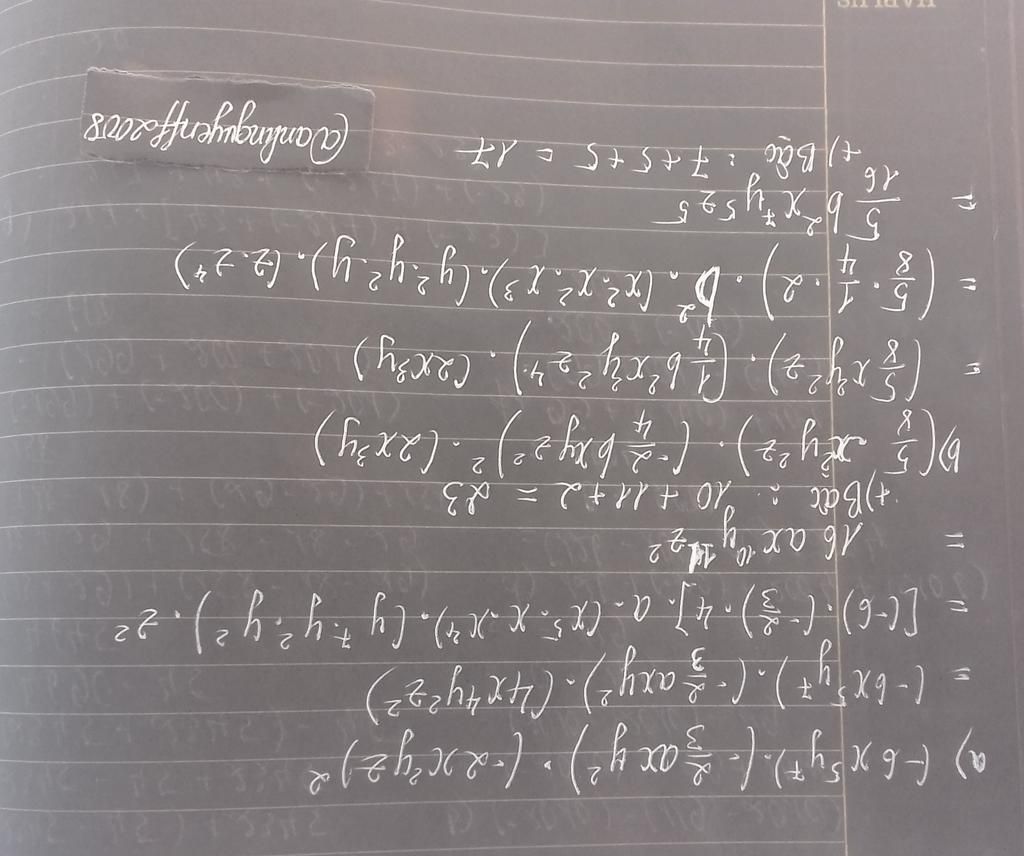 a) (-6x⁵y⁷).(-2/3 axy²).(-2x²yz)²
= (-6x⁵y⁷).(-2/3 axy²).(4x⁴y²z²)
= [(-6).(-2/3).4].a.(x⁵.x.x⁴).(y⁷.y².y²).z²
= 16ax¹⁰y¹¹z²
+) Bậc : 10 + 11 + 2 = 23
b) (5/8 x²y²z).(-2/4 bxyz²)².(2x³y)
= (5/8 x²y²z).(1/4 b²x²y²z⁴).(2x³y)
= (5/8.1/4.2).b².(x².x².x³).(y².y².y).(z.z⁴)
= 5/16 b²x⁷y⁵z⁵
+) Bậc : 7+5+5 = 17
@anlnguyenff2008
HARIUS